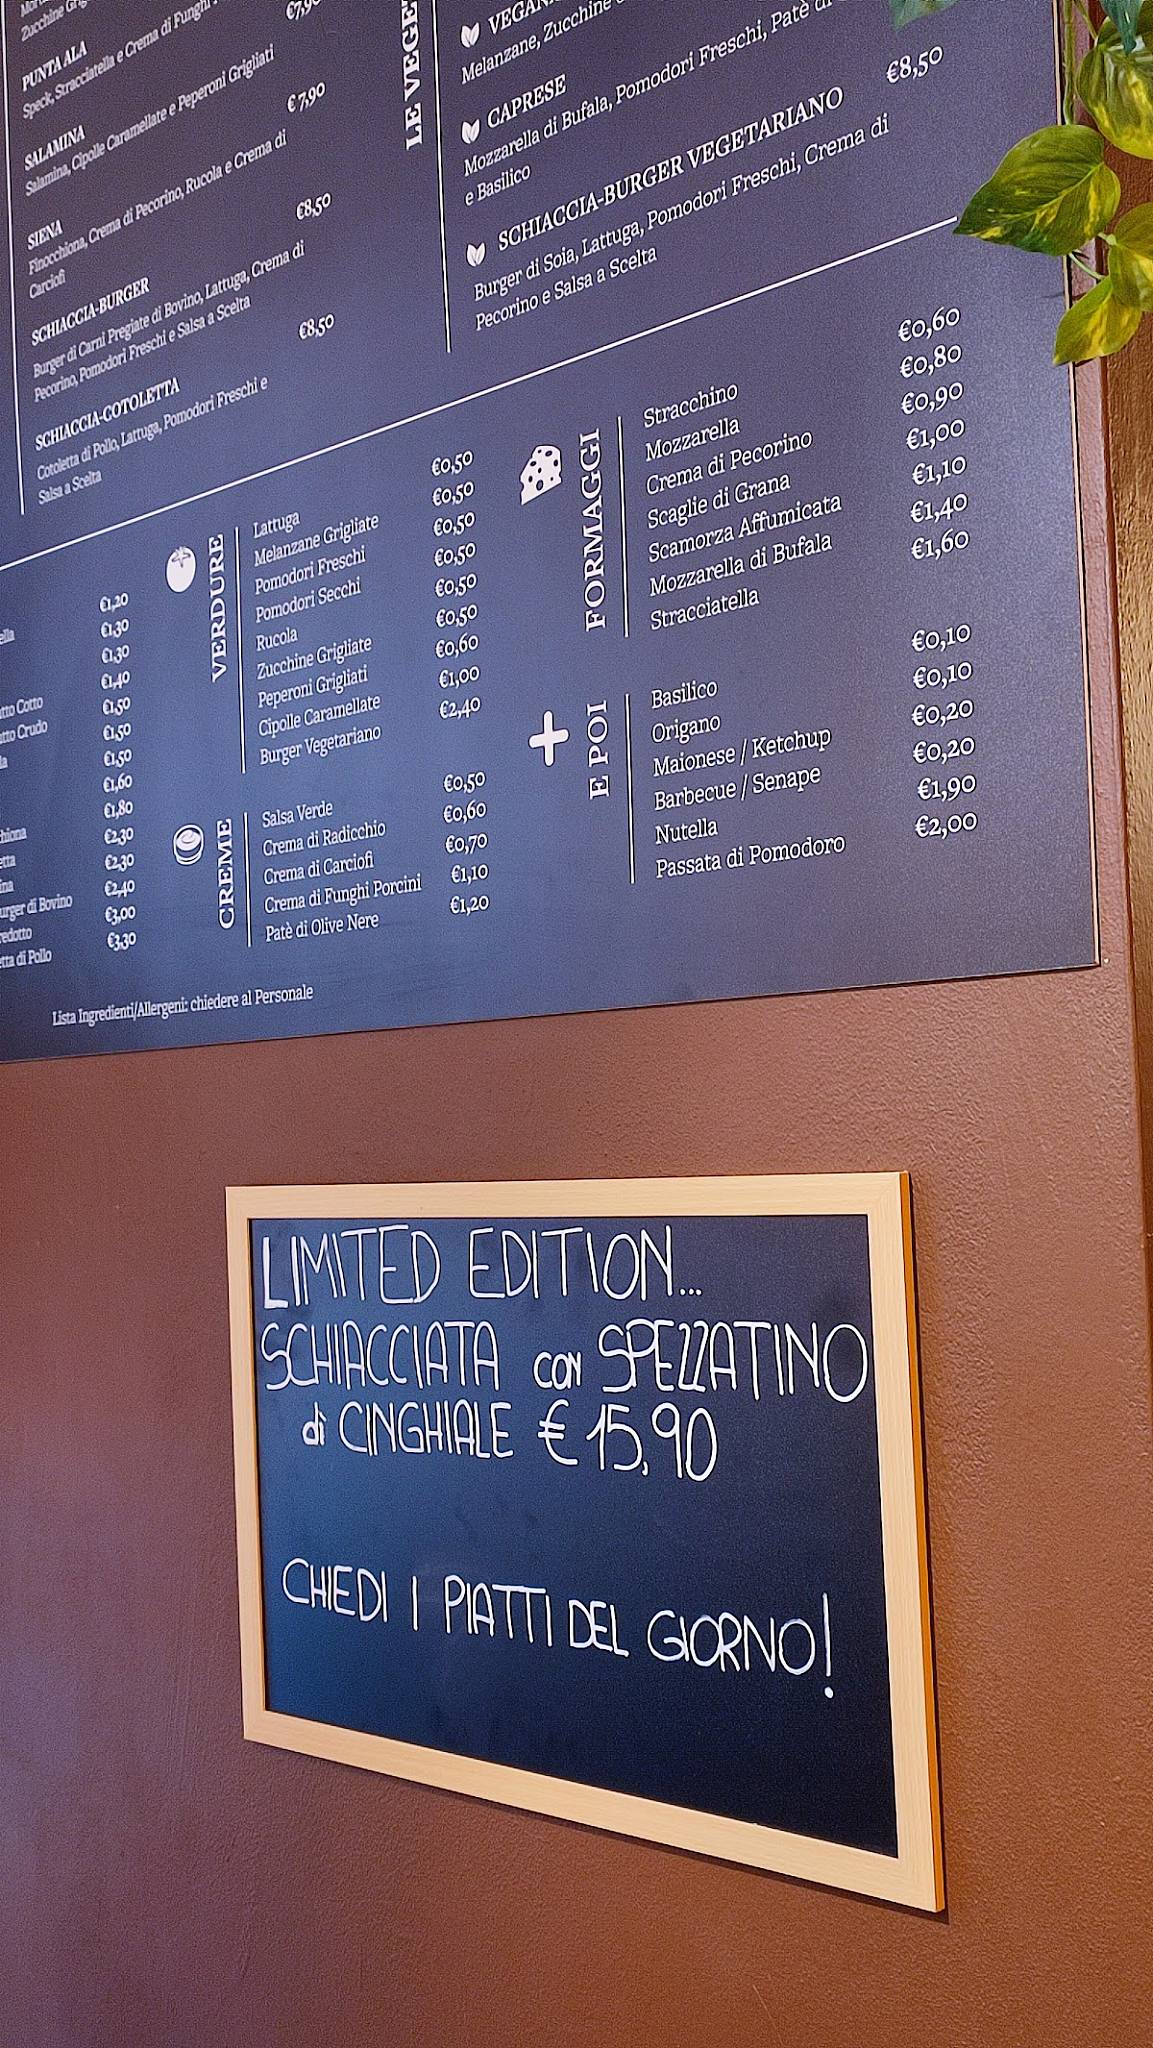 Zucchine
€7,90
PUNTA ALA
Speck, Stracciatella e Crema di Funghi
SALAMINA
Salamina, Cipolle Caramellate e Peperoni Grigliati
€7,90
SIENA
Finocchiona, Crema di Pecorino, Rucola e Crema di
Carciofi
€8,50
SCHIACCIA-BURGER
Burger di Carni Pregiate di Bovino, Lattuga, Crema di
Pecorino, Pomodori Freschi e Salsa a Scelta
€8,50
SCHIACCIA-COTOLETTA
Cotoletta di Pollo, Lattuga, Pomodori Freschi e
Salsa a Scelta
LE VEGE
Melanzane, Zucchine
CAPRESE
Mozzarella di Bufala, Pomodori Freschi, Patè di
e Basilico
€8,50
SCHIACCIA-BURGER VEGETARIANO
Burger di Soia, Lattuga, Pomodori Freschi, Crema di
Pecorino e Salsa a Scelta
€1,20
€1,30
€1,30
€1,40
€1,50
€1,50
€1,50
€1,60
€1,80
€2,30
€2,30
€2,40
€3,00
€3,30
Cotto
Crudo
di Bovino
di Pollo
VERDURE
Lattuga €0,50
Melanzane Grigliate €0,50
Pomodori Freschi €0,50
Pomodori Secchi €0,50
Rucola €0,50
Zucchine Grigliate €0,50
Peperoni Grigliati €0,60
Cipolle Caramellate €1,00
Burger Vegetariano €2,40
CREME
Salsa Verde €0,50
Crema di Radicchio €0,60
Crema di Carciofi €0,70
Crema di Funghi Porcini €1,10
Patè di Olive Nere €1,20
FORMAGGI
Stracchino €0,60
Mozzarella €0,80
Crema di Pecorino €0,90
Scaglie di Grana €1,00
Scamorza Affumicata €1,10
Mozzarella di Bufala €1,40
Stracciatella €1,60
E POI
Basilico €0,10
Origano €0,10
Maionese / Ketchup €0,20
Barbecue / Senape €0,20
Nutella €1,90
Passata di Pomodoro €2,00
Lista Ingredienti/Allergeni: chiedere al Personale
LIMITED EDITION...
SCHIACCIATA con SPEZZATINO
di CINGHIALE € 15,90
CHIEDI I PIATTI DEL GIORNO!